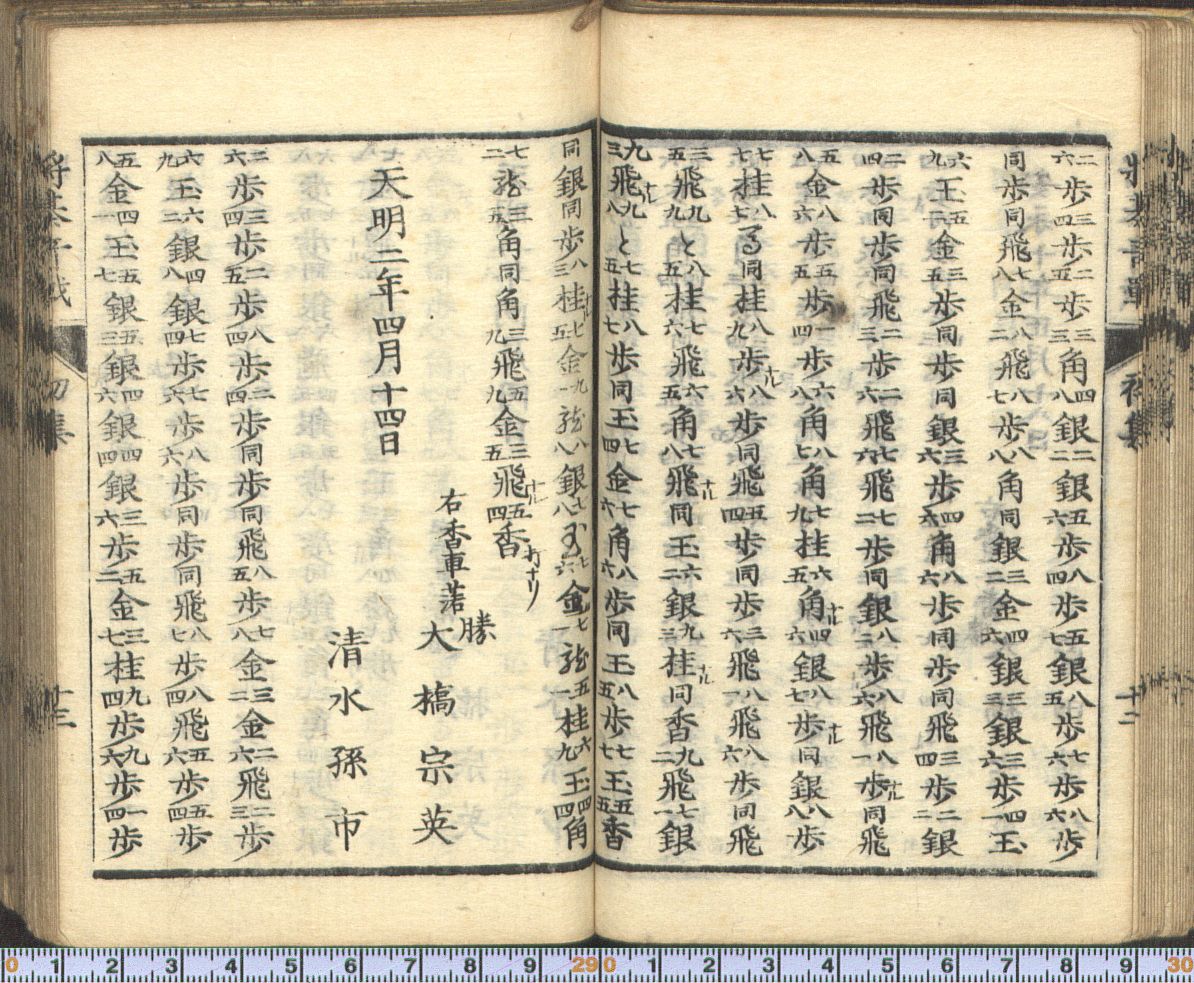 二六歩三四歩二五歩三三角四八銀二二銀五六歩八四歩五七銀八五歩七六歩八六歩
同歩同飛七八金八二飛八七歩八八角同銀三二金四六銀三三銀三六歩四一玉
六九玉五二金三五歩同歩同銀三六歩四六角八六歩同歩同飛三四歩二二銀
二四歩同歩同飛二三歩二六飛七六飛二二歩同銀八二歩八六飛八一歩ナル同飛
五八金八六歩五五歩一四歩六八角七八角七九桂六五角ナル四六銀八七歩ナル同銀八八歩
七七桂八七る同桂八九歩ナル八六歩同飛五四歩同歩三六飛八八飛八六歩同飛
三五飛九九と八五桂七六飛六五角七八飛ナル同玉六二銀九三桂ナル同香九二飛七一銀
九三飛ナル九八と七五桂八七歩同玉七四金七六角八六歩同玉八五歩七七玉五五香
同銀同歩八三桂ナル七五金一九龍八八銀七八玉七六金一七龍一五桂六九玉四四角
七二龍三五角同角三九飛五九金三五飛ナル五四香打ナリ
右香車落
勝 大橋宗英
清水孫市
天明二年四月十四日
二六歩三四歩二五歩八四歩二四歩同歩同飛八五歩七八金三二金二六飛二三歩
六九玉六二銀四八銀七四歩七六歩八六歩同歩同飛八七歩八四飛五六歩五四歩
五八金四一玉五七銀五三銀四六銀四四銀三六歩五二金三七桂九四歩九六歩一四歩